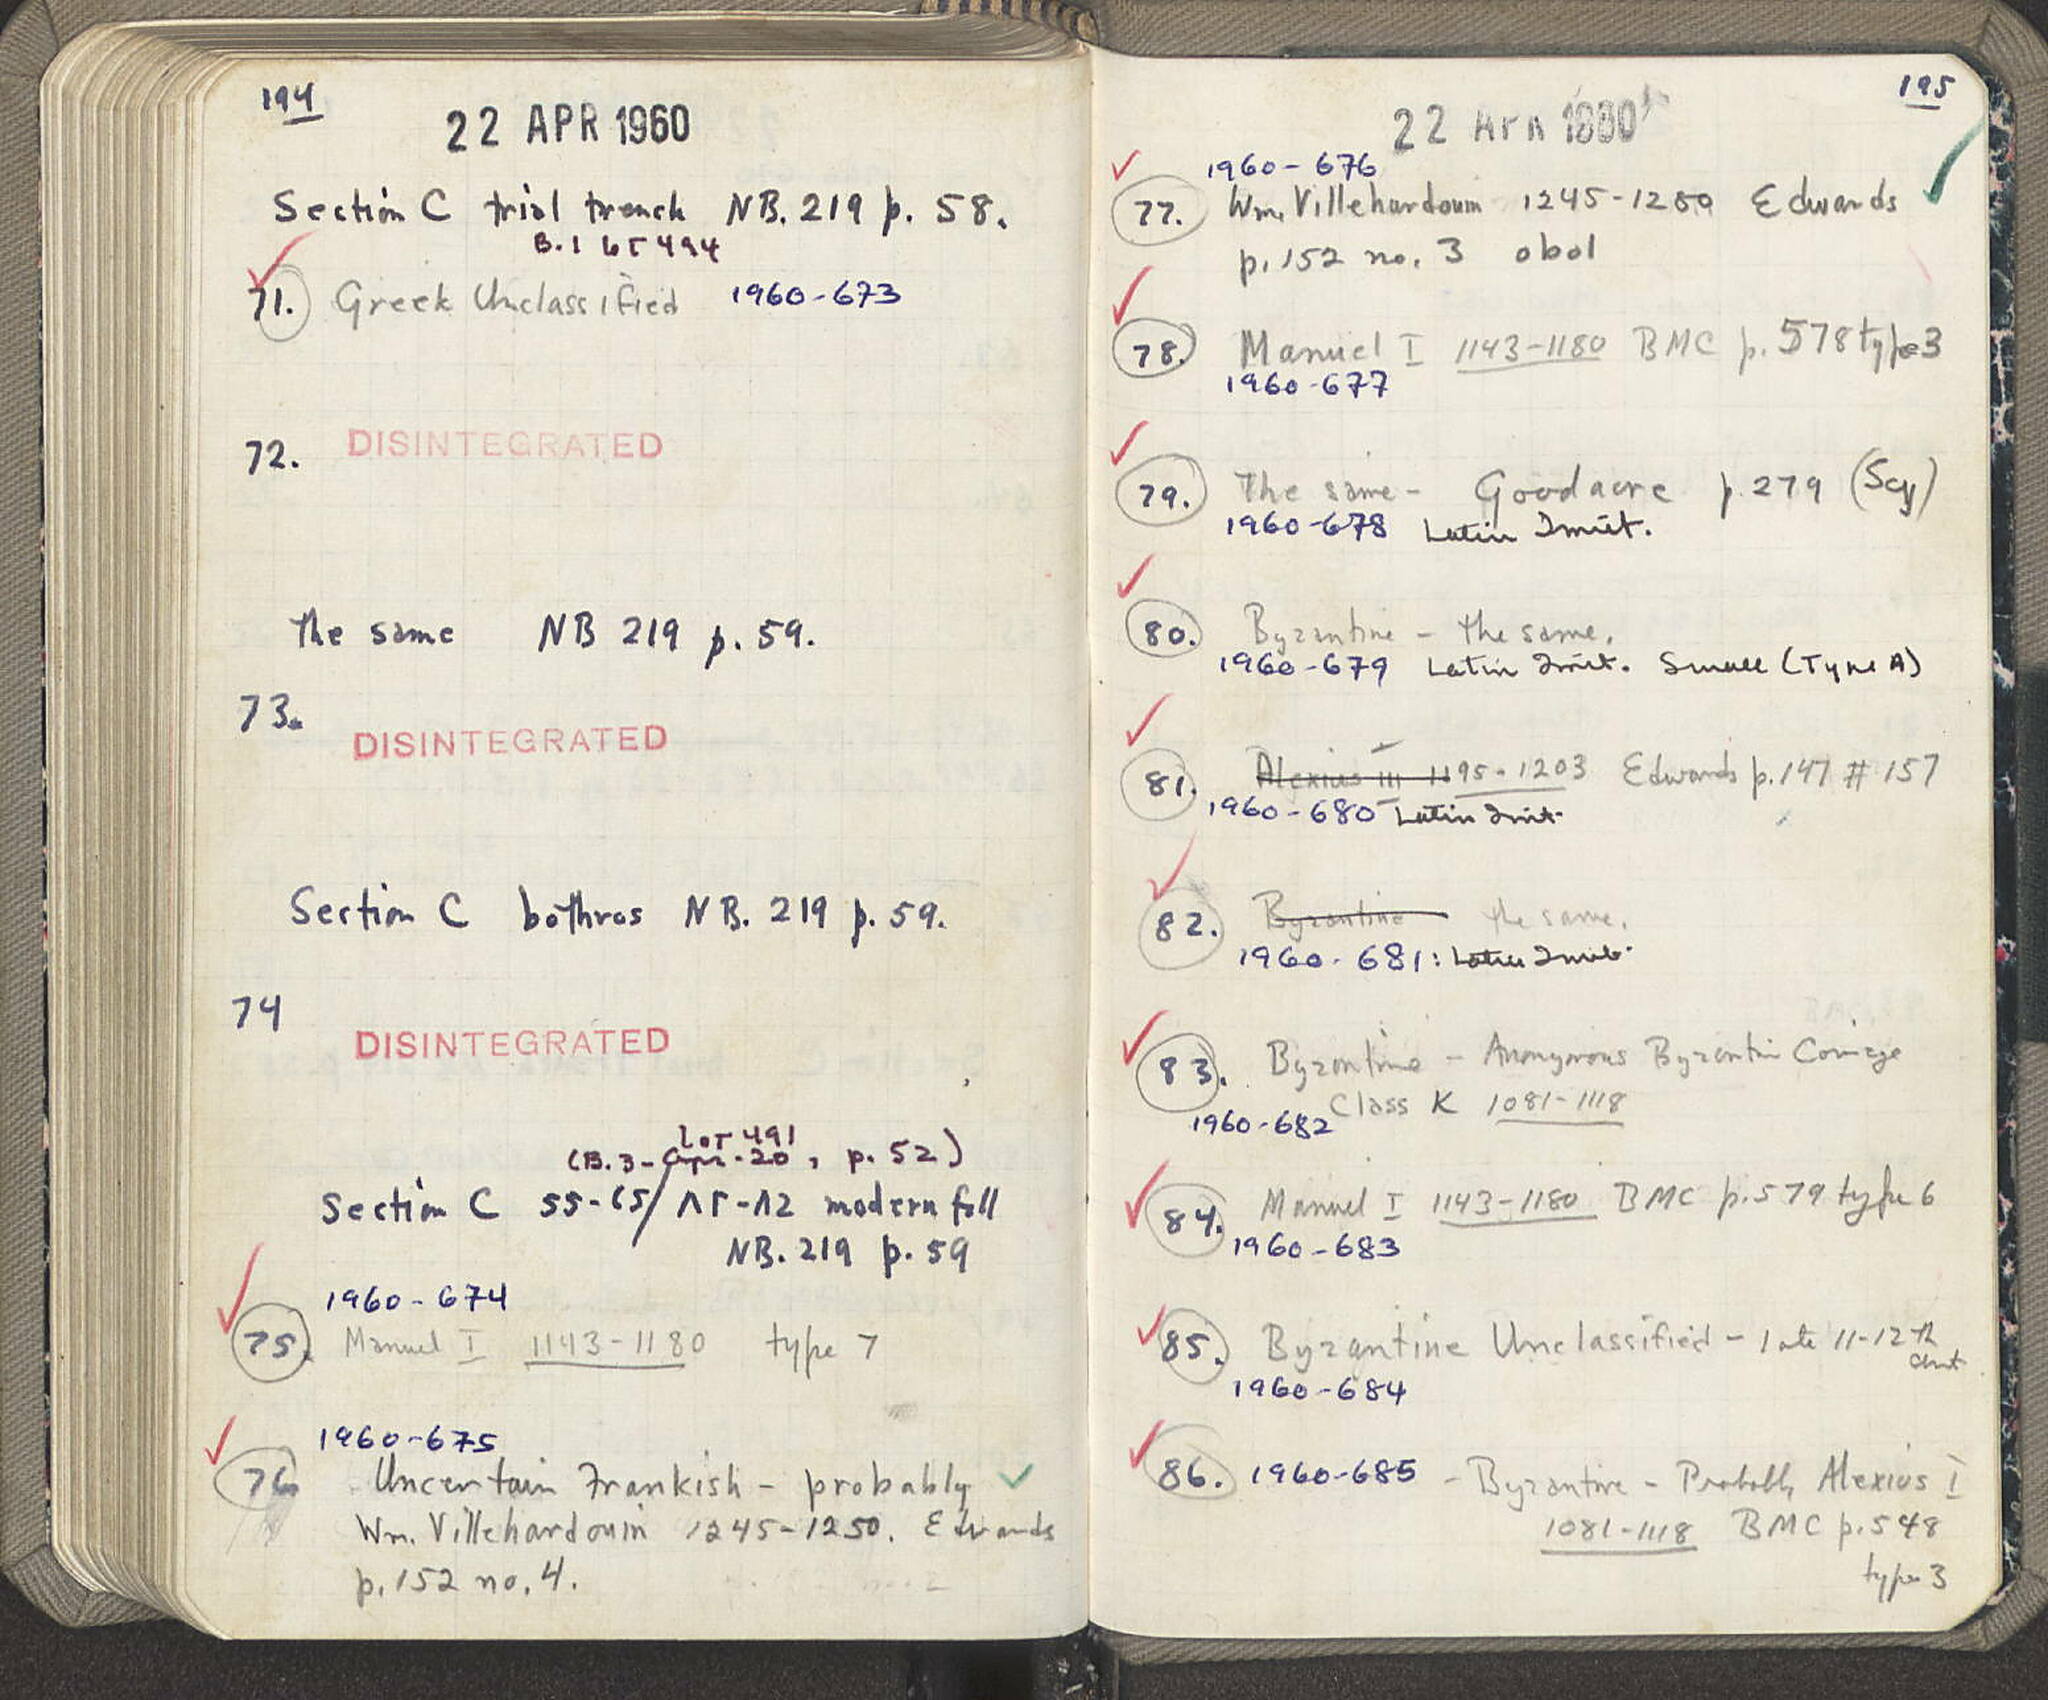 194
22 APR 1960
Section C trial trench NB. 219 p. 58.
B. 1 lot 494
71. Greek Unclassified 1960-673
72. DISINTEGRATED
the same NB 219 p. 59.
73. DISINTEGRATED
Section C bothros NB. 219 p. 59.
74 DISINTEGRATED
Lot 491
(B. 3- Apr. 20, p. 52)
Section C 55-65/ΛΓ-ΛΖ modern fill
NB. 219 p. 59
1960-674
75. Manuel I 1143-1180 type 7
1960-675
76. Uncertain Frankish - probably
Wm. Villehardouin 1245-1250. Edwards
p. 152 no. 4.
195
22
1960-676
77. Wm. Villehardouin 1245-1250 Edwards
p. 152 no. 3 obol
78. Manuel I 1143-1180 BMC p. 578 type 3
1960-677
79. The same - Goodacre p. 279 (Scy)
1960-678 Latin Imit.
80. Byzantine - the same.
1960-679 Latin Imit. Small (Type A)
81. Alexius III 1195-1203 Edwards p. 147 # 157
1960-680 Latin Imit.
82. Byzantine the same.
1960-681: Latin Imit.
83. Byzantine - Anonymous Byzantine Coinage
Class K 1081-1118
1960-682
84. Manuel I 1143-1180 BMC p. 579 type 6
1960-683
85. Byzantine Unclassified - late 11-12th
cent
1960-684
86. 1960-685 - Byzantine - Probably Alexius I
1081-1118 BMC p. 548
type 3